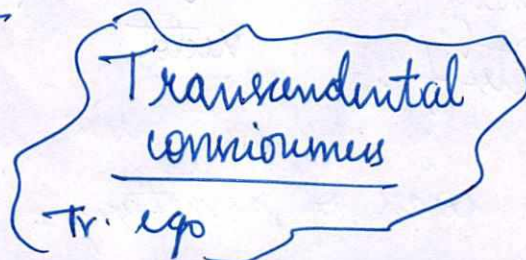 Transcendental
consciousness
Tr. ego